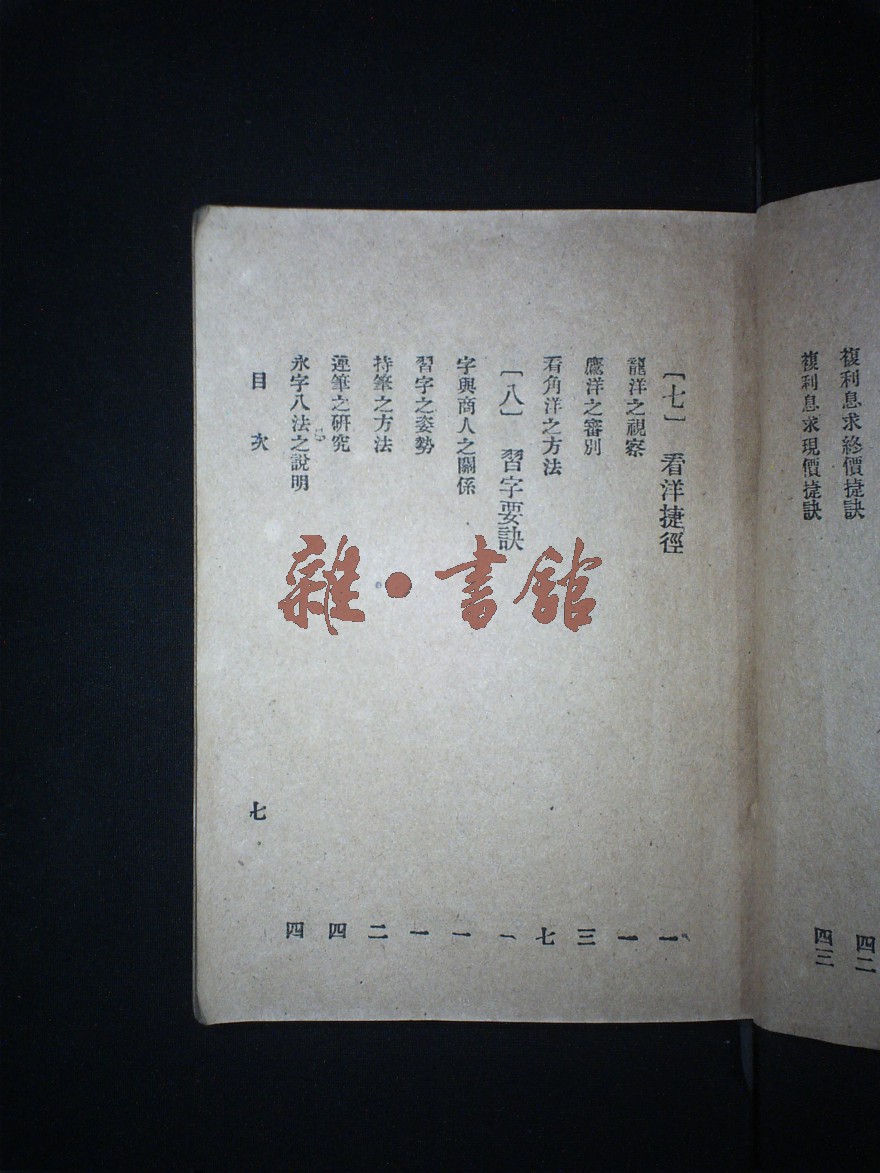 複利息求終價捷訣 四二
複利息求現價捷訣 四三
〔七〕 看洋捷徑 一
龍洋之視察 一
鷹洋之審別 三
看角洋之方法 七
〔八〕 習字要訣 一
字與商人之關係 一
習字之姿勢 一
持筆之方法 二
運筆之研究 四
永字八法之說明 四
目次 七
雜·書館